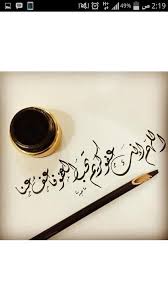 2:19 ص
95%
اللهم إنك عفو كريم تحب العفو فاعف عنا